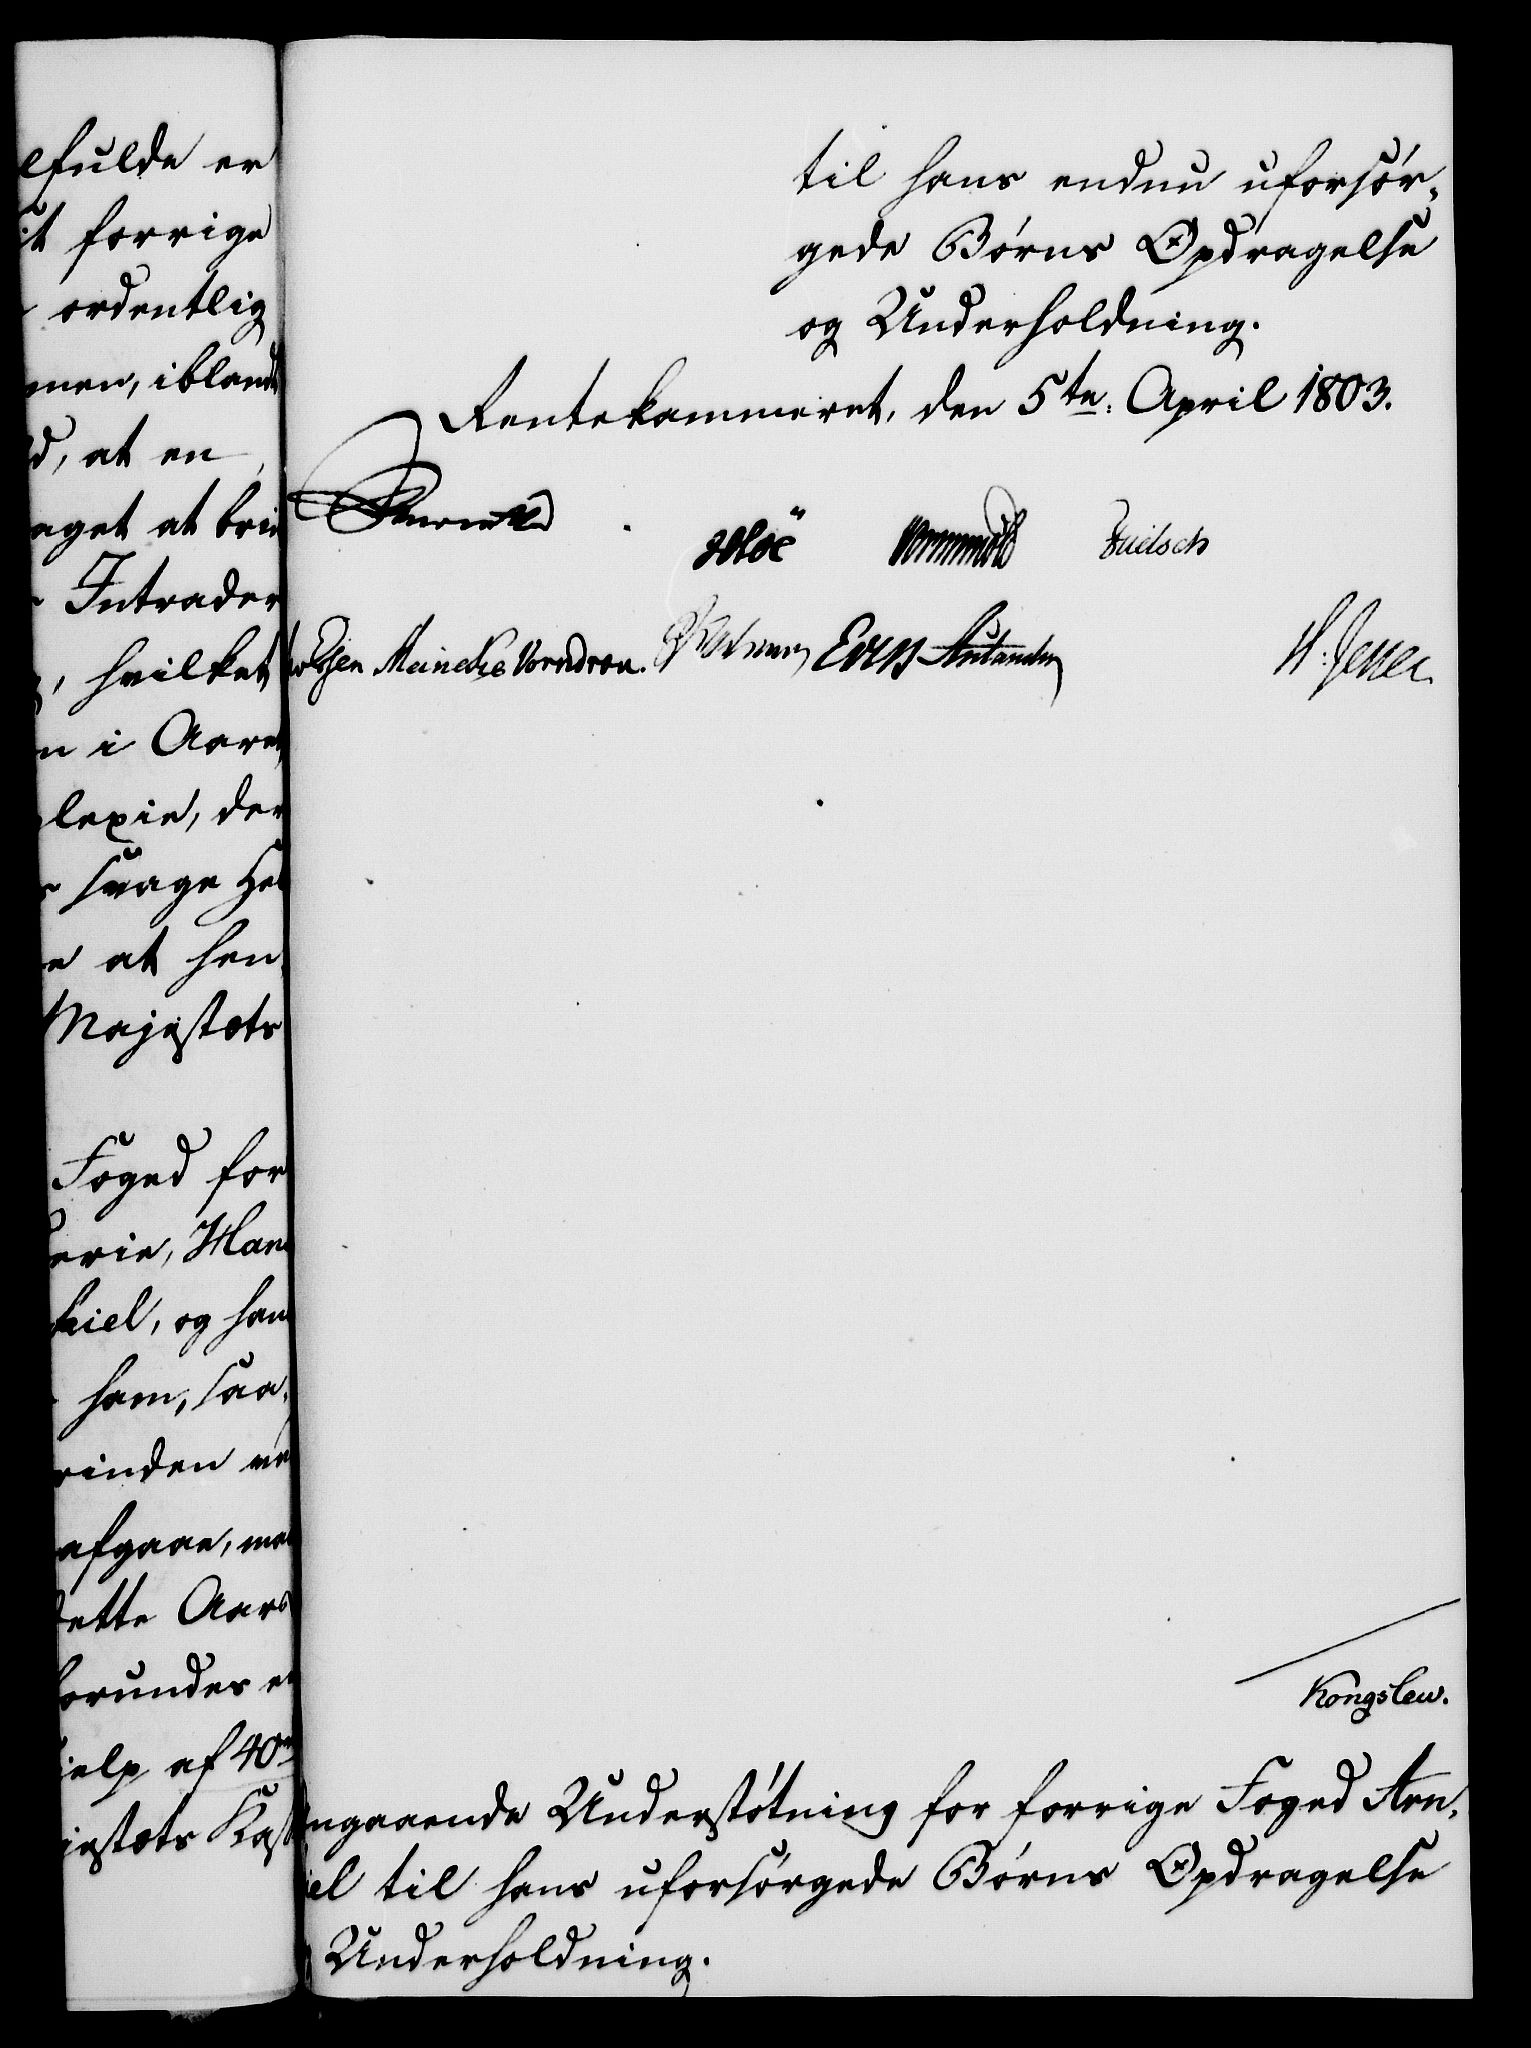 lfulde er
it forrige
ordentlig
men, iblandt
d, at en
aget at brin
Intrader
, hvilket
n i Aaret
lexie, der
svage Hel
e at hen,
Majestæts
Foged for
erie, Han
kiel, og han
ham, saa,
rinden
afgaae, me
dette Aars
forundes e
ielp af 40
jestæts Kass
til hans endnu uforsør,
gede Børns Opdragelse
og Underholdning.
Rentekammeret, den 5te. April 1803.
Meincke Vorndran.
Kongslew.
ngaaende Understøtning for forrige Foged Arn,
iel til hans uforsørgede Børns Opdragelse
Underholdning.